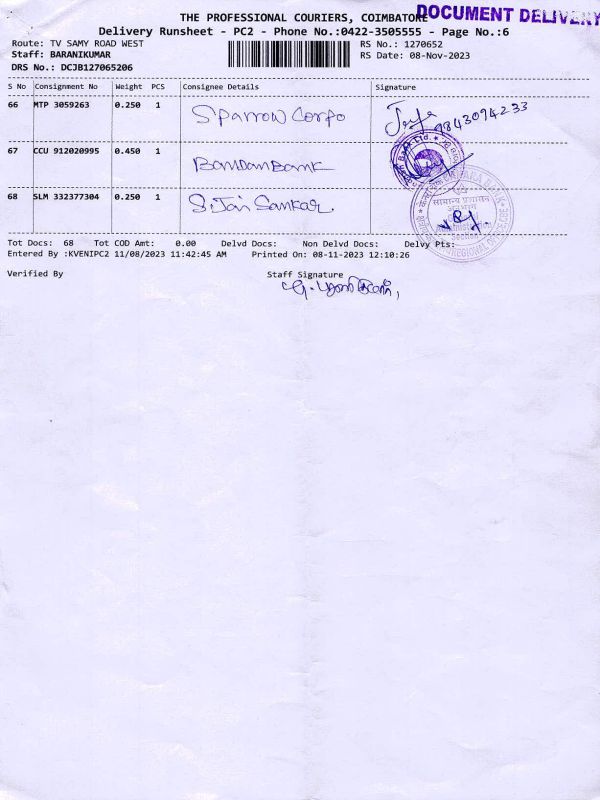 THE PROFESSIONAL COURIERS, COIMBATORE
DOCUMENT DELIVERY
Delivery Runsheet - PC2 - Phone No.:0422-3505555 - Page No.:6
Route: TV SAMY ROAD WEST RS No.: 1270652
Staff: BARANIKUMAR RS Date: 08-Nov-2023
DRS No.: DCJB127065206
S No Consignment No Weight PCS Consignee Details Signature
66 MTP 3059263 0.250 1 Sparrow Corpo 9843094233
67 CCU 912020995 0.450 1 Bandan Bank
68 SLM 332377304 0.250 1 S. Jai Sankar.
सामान्य प्रशासन
अनुभाग
Section
REGIONAL OFFICE
Tot Docs: 68 Tot COD Amt: 0.00 Delvd Docs: Non Delvd Docs: Delvy Pts:
Entered By :KVENIPC2 11/08/2023 11:42:45 AM Printed On: 08-11-2023 12:10:26
Verified By Staff Signature